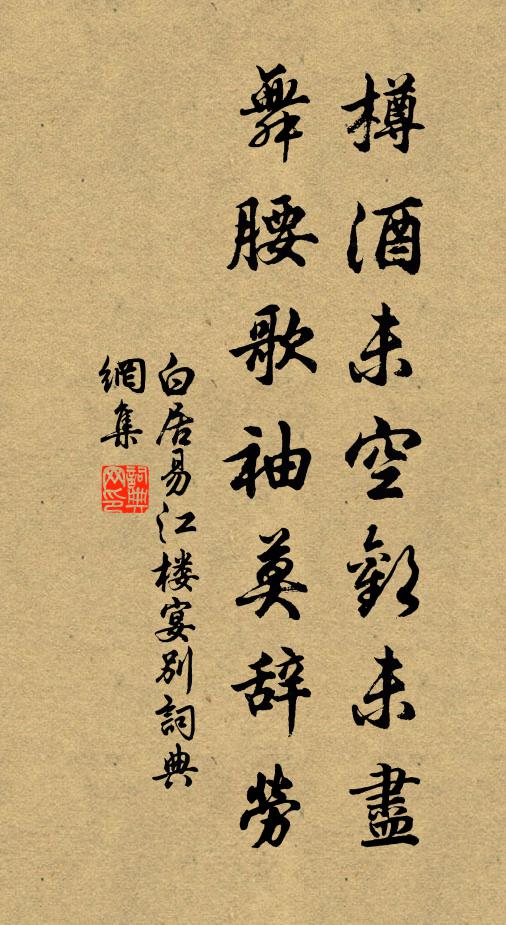 樽酒未空歡未盡
舞腰歌袖莫辭勞
白居易江楼宴別詞典
網集
詞典网印